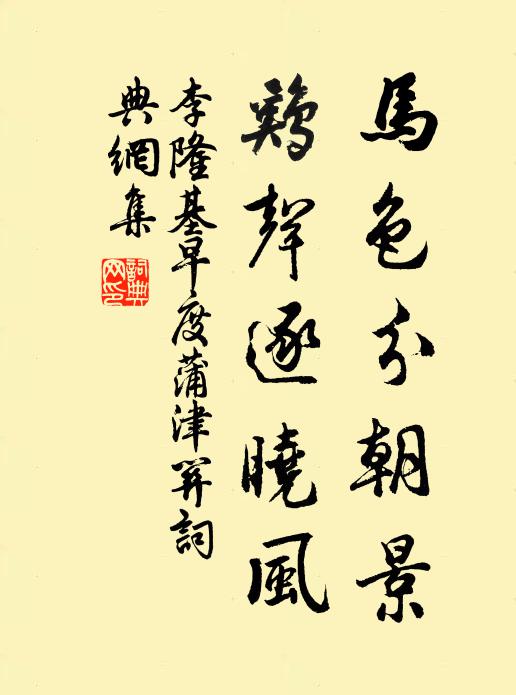 馬色分朝景
鷄聲逐曉風
李隆基早度蒲津關詞
典網集
詞典
网印